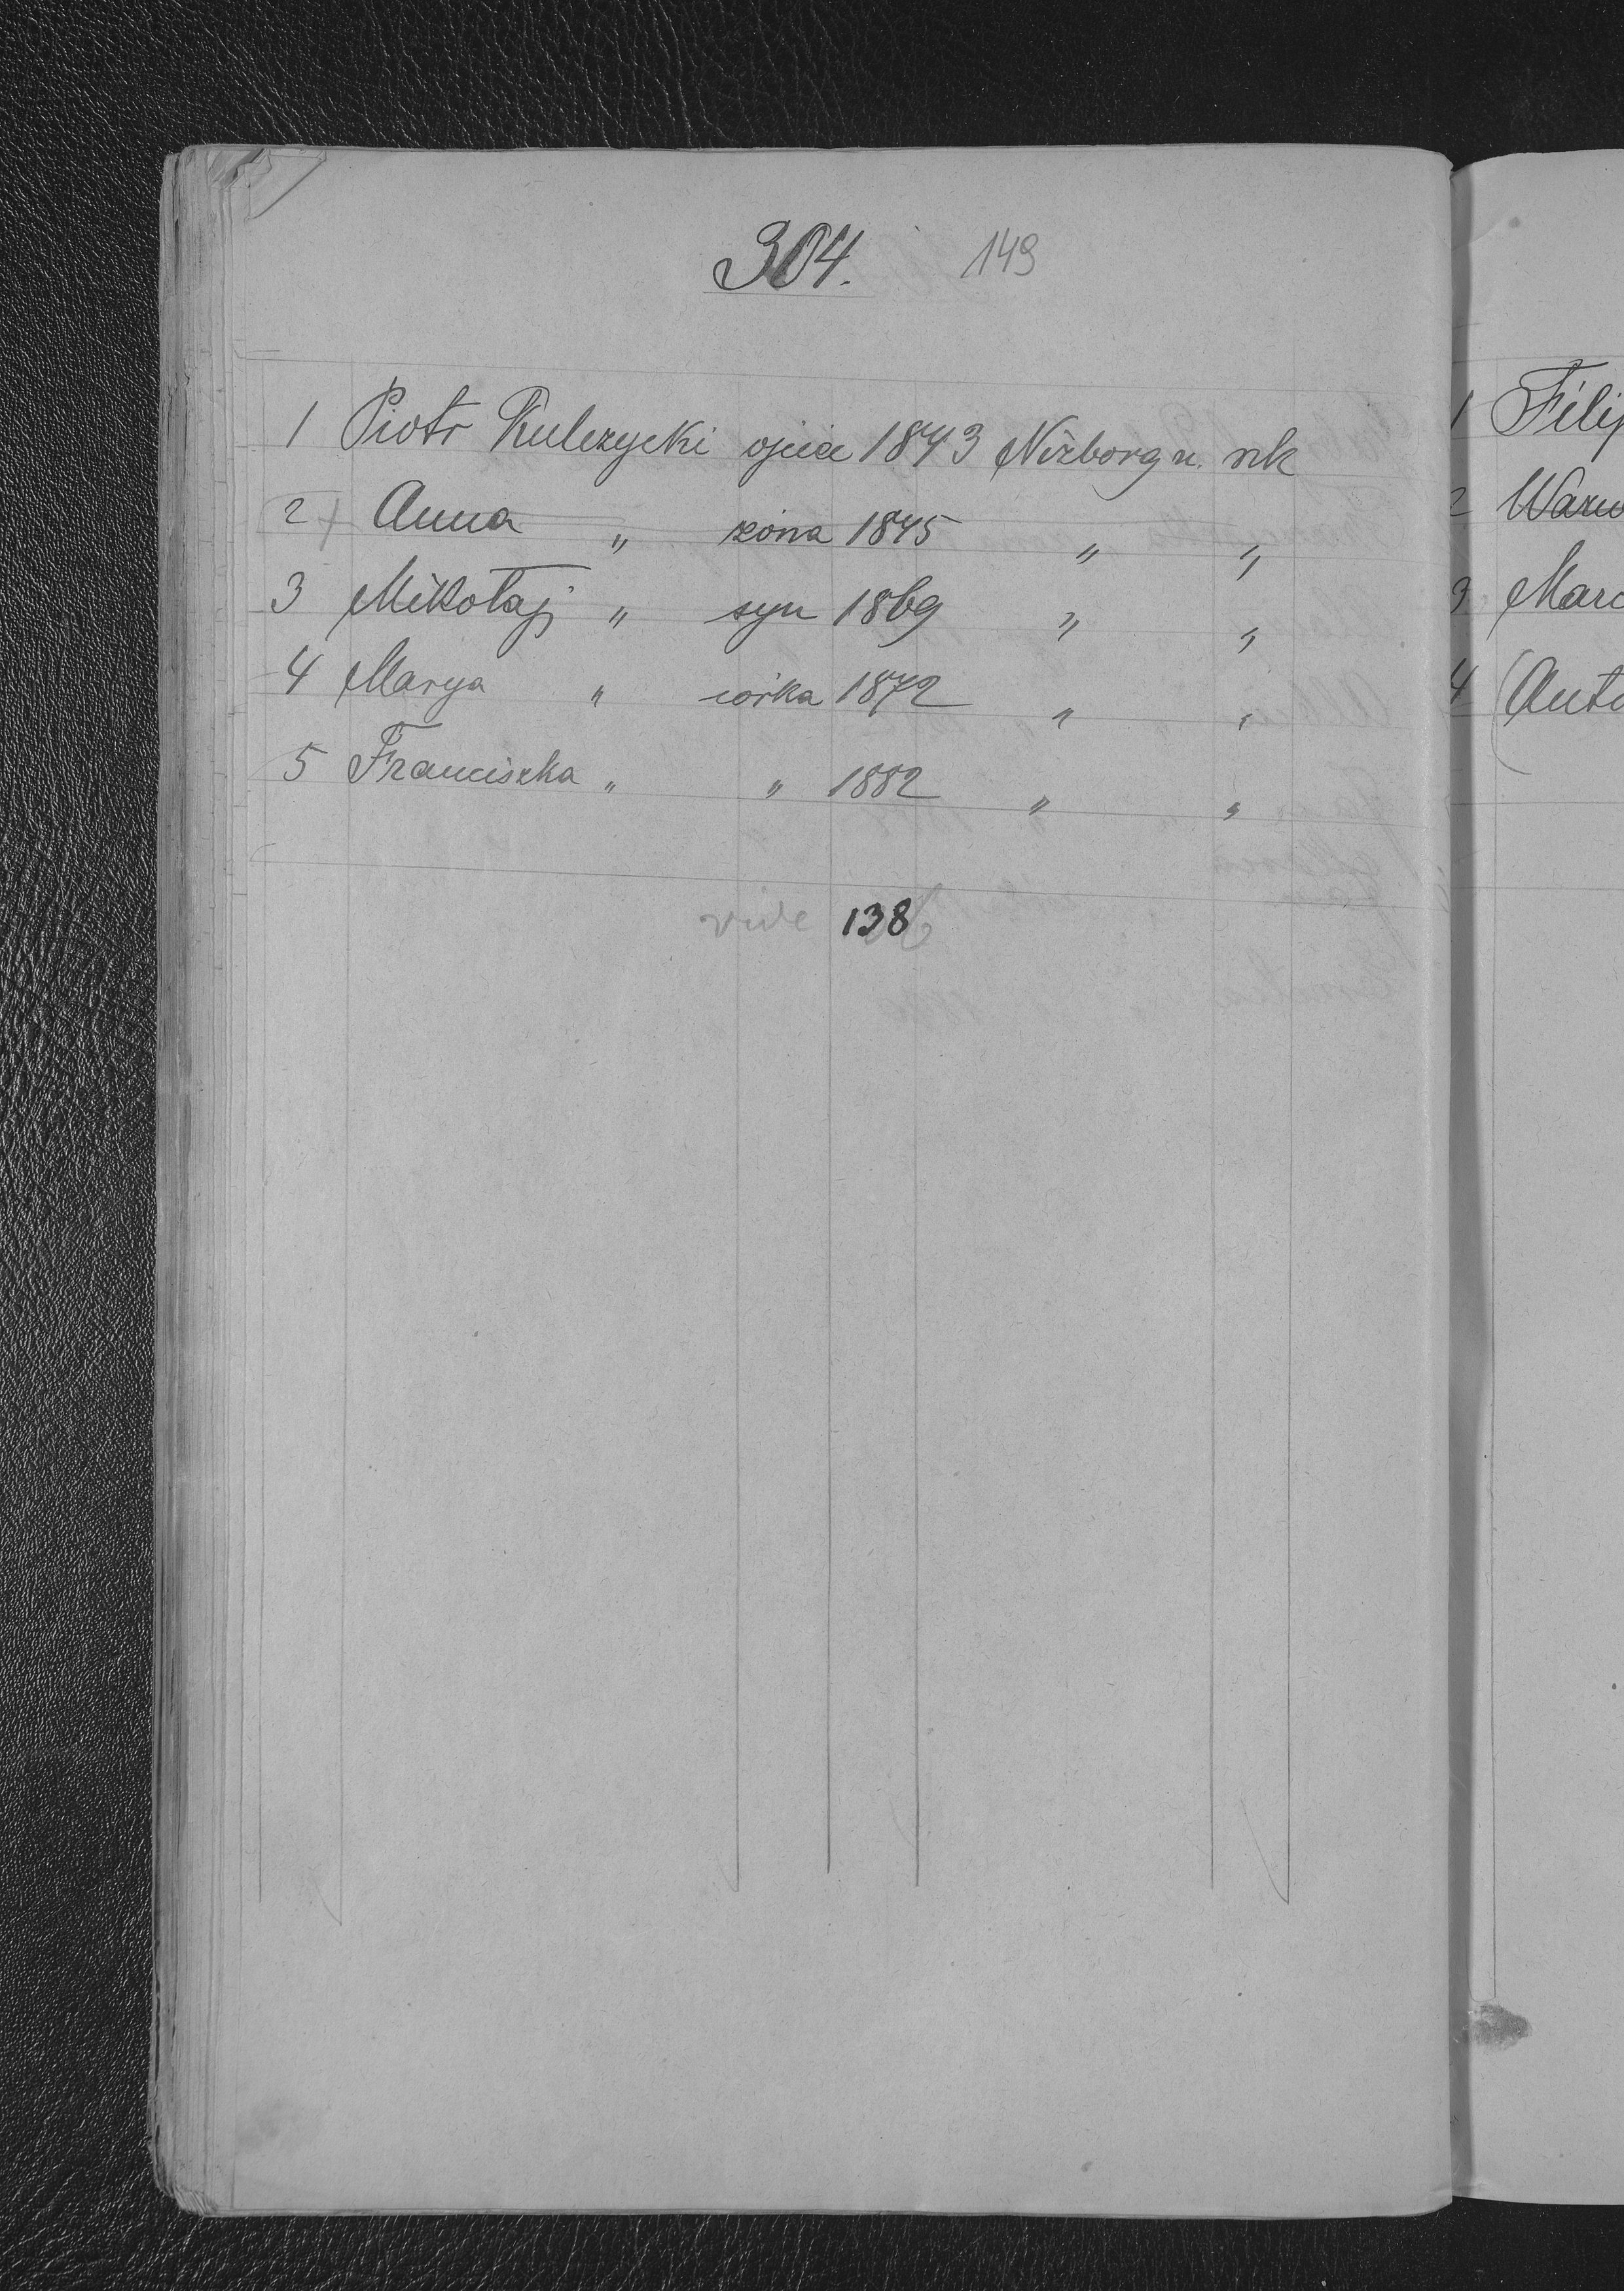 304. 149
1 Piotr Kulczycki ojciec 1843 Niżborg n. rzk
2 Anna " żona 1845 " "
3 Mikołaj " syn 1869 " "
4 Marya " córka 1872 " "
5 Franciszka " " 1882 " "
vide 138
1 Filip
2
3 Mar
4 Anto